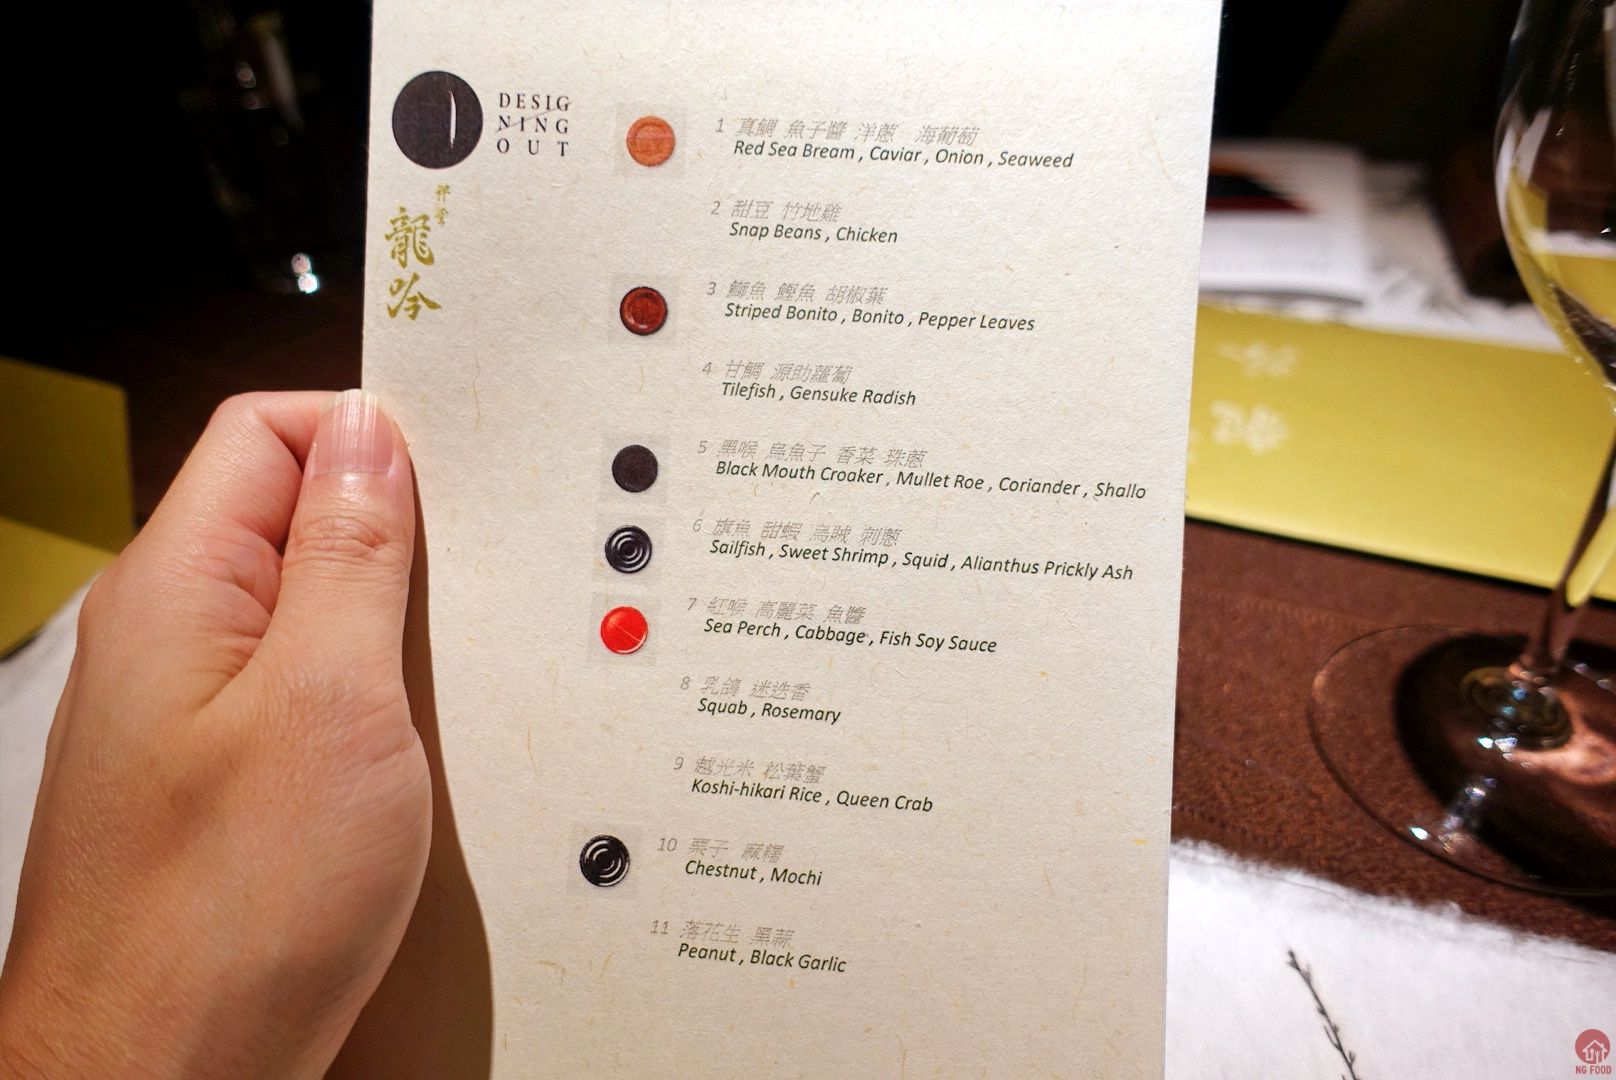 DESIG
NING
OUT
祥雲
龍吟
1 真鯛 魚子醬 洋蔥 海葡萄
Red Sea Bream , Caviar , Onion , Seaweed
2 甜豆 竹地雞
Snap Beans , Chicken
3 鰤魚 鰹魚 胡椒葉
Striped Bonito , Bonito , Pepper Leaves
4 甘鯛 源助蘿蔔
Tilefish , Gensuke Radish
5 黑喉 烏魚子 香菜 珠蔥
Black Mouth Croaker , Mullet Roe , Coriander , Shallo
6 旗魚 甜蝦 烏賊 刺蔥
Sailfish , Sweet Shrimp , Squid , Alianthus Prickly Ash
7 紅喉 高麗菜 魚醬
Sea Perch , Cabbage , Fish Soy Sauce
8 乳鴿 迷迭香
Squab , Rosemary
9 越光米 松葉蟹
Koshi-hikari Rice , Queen Crab
10 栗子 麻糬
Chestnut , Mochi
11 落花生 黑蒜
Peanut , Black Garlic
NG FOOD